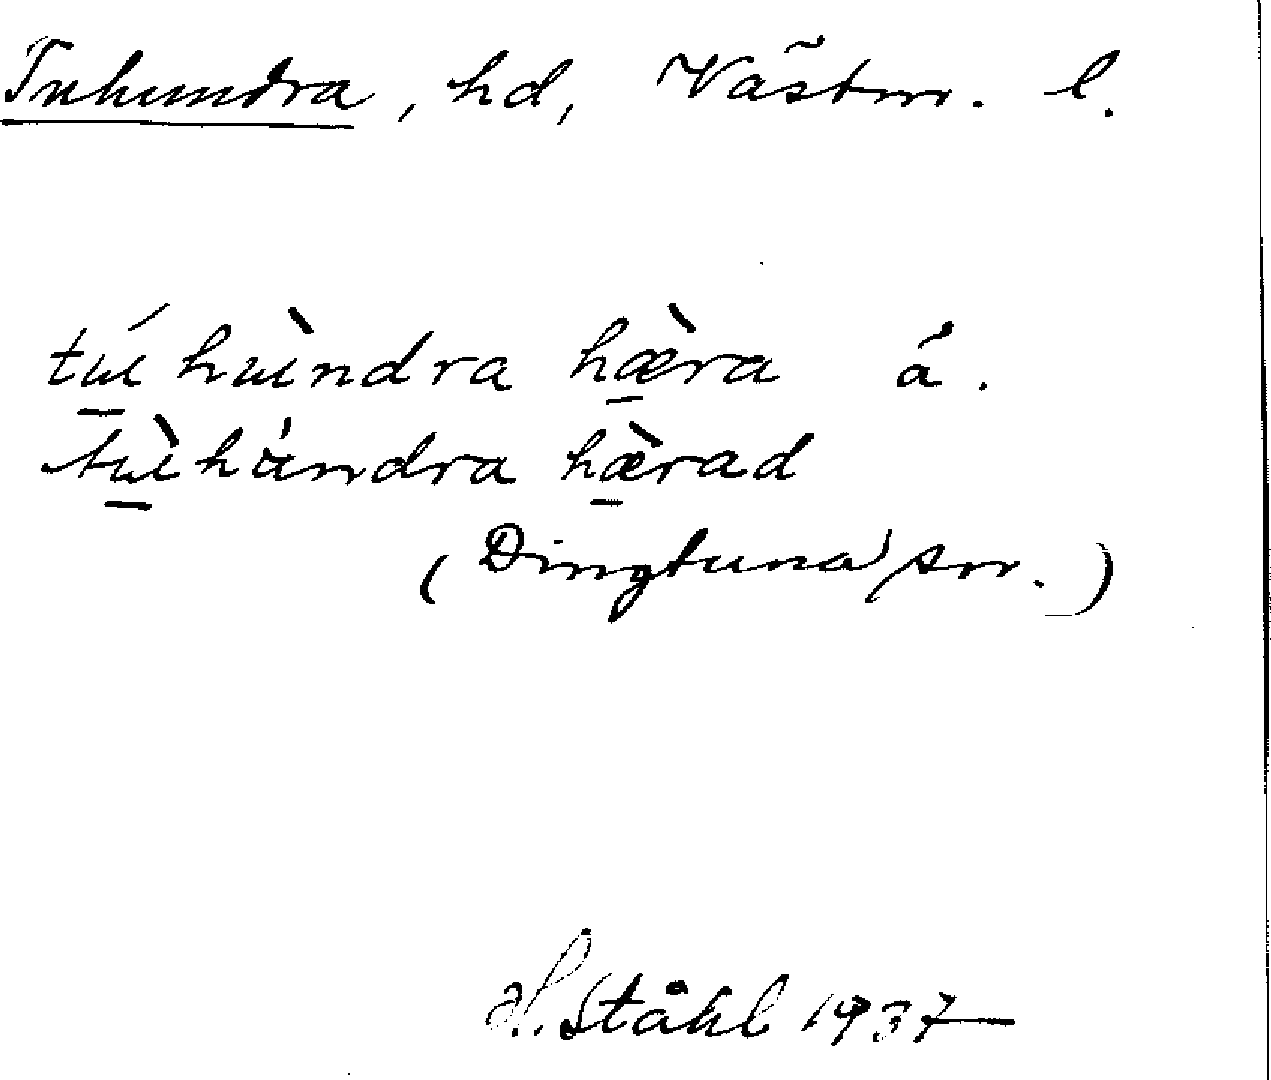 Tuhundra, hd, Västm. l.
tú hùndra hæ̀ra å.
tùhúndra hæ̀rad
(Dingtuna sn.)
H. Ståhl 1937